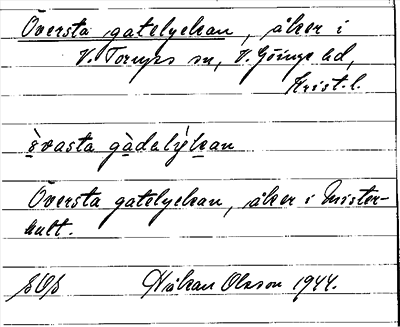 Översta gatelyckan, åker i
V. Torups sn, V. Göinge hd,
Krist. l.
èvasta gàdelýkan
Översta gatelyckan, åker i Mister-
hult.
Håkan Olsson 1944.